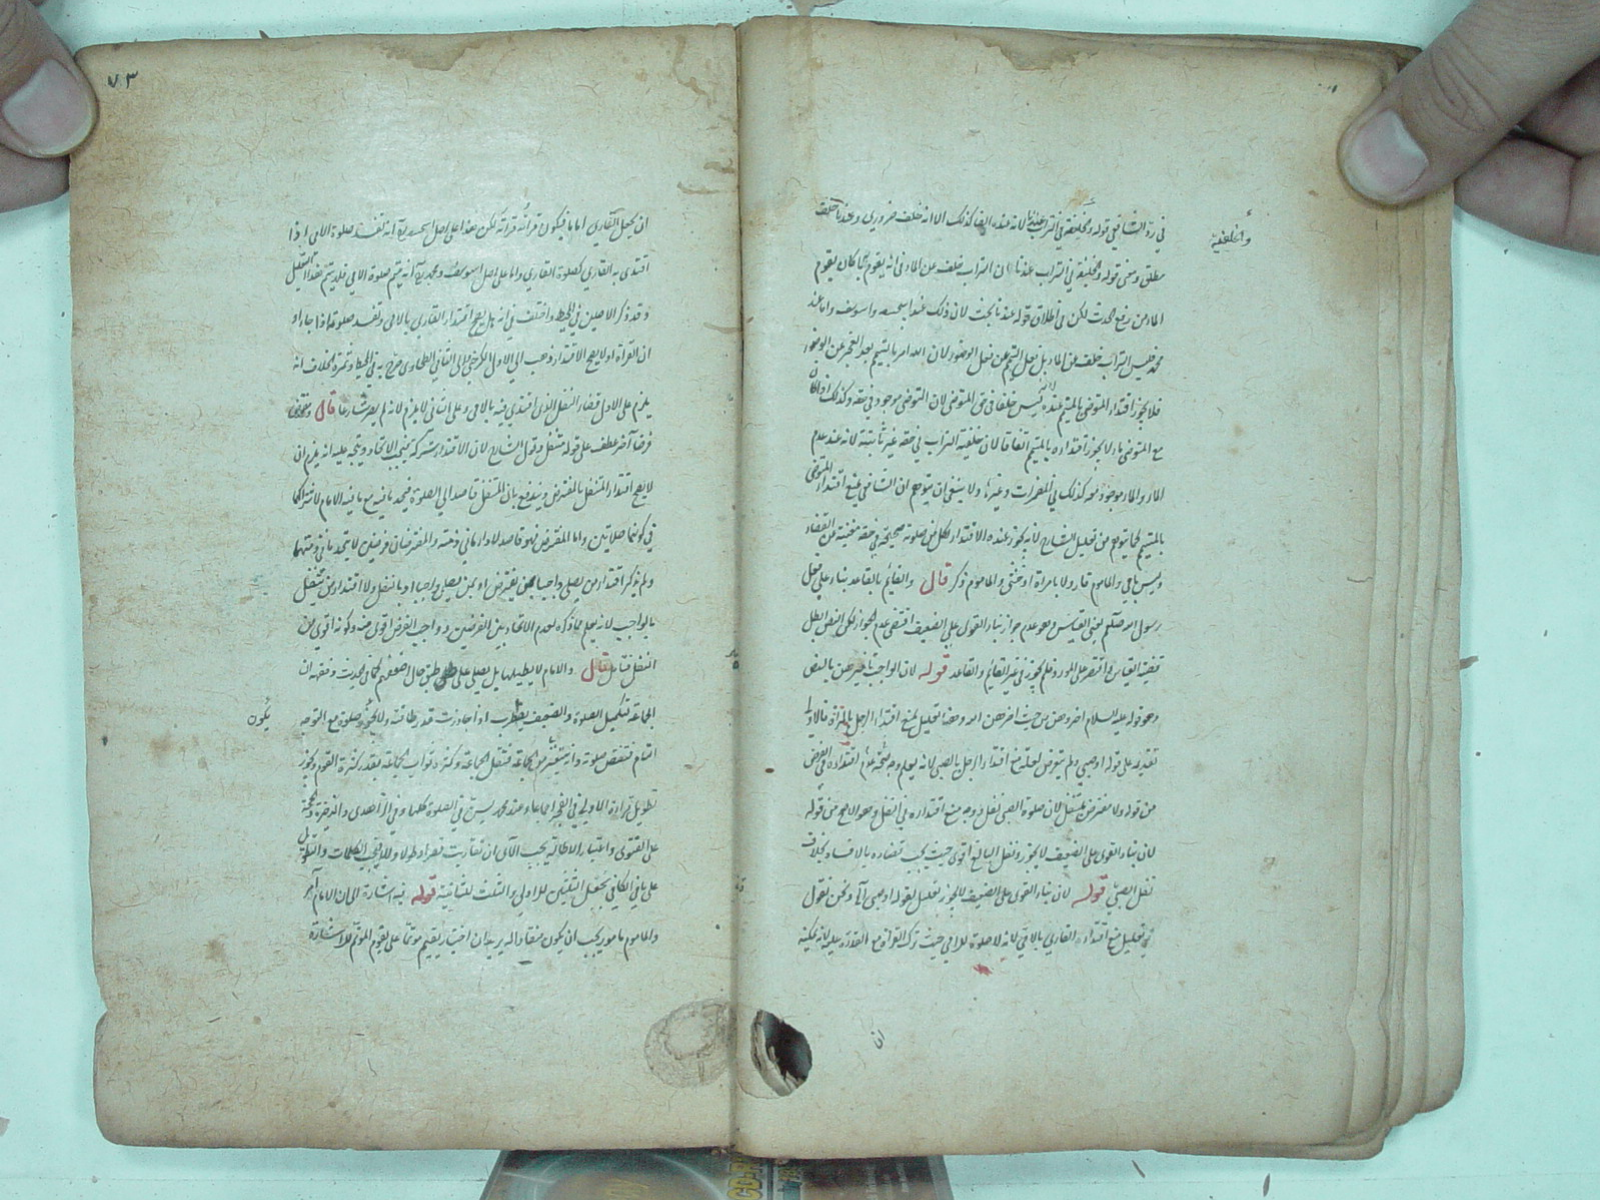 في رد الشافعي قوله والخليفة في التراب عندنا لانه عنده ايضا كذلك الا انه خلف ضروري وعندنا خلف
والخليفة
مطلق ومعنى قوله والخليفة في التراب عندنا ان التراب خلف عن الماء في انه يقوم كما كان يقوم
الماء من رفع الحدث لكن في اطلاق قوله عندنا بحث لان ذلك عند ابيحنيفه وابويوسف واما عند
محمد فليس التراب خلف عن الماء بل فعل التيمم عن فعل الوضوء لان الله امر بالتيمم بعد العجز عن الوضوء
فلا يجوز اقتداء المتوضئ بالمتيمم عنده ليس خلفا في حق المتوضئ لان التوضئ موجود في حقه وكذلك اذا كان
مع المتوضئ ماء لا يجوز اقتداءه بالمتيمم اتفاقا لان خلفية التراب في حقه غير ثابتة لانه عند عدم
الماء والماء موجود معه كذلك في المضمرات وغيرها ولا ينبغي ان يتوهم ان الشافعي يمنع اقتداء المتوضئ
بالمتيمم كما يتوهم من تعليل الشارح لانه يجوز عنده الاقتداء لكل من صلوته صحيحة في حقه مغنية عن القضاء
وليس بامي والمأموم قارء ولا بامرأة او خنثى والمأموم ذكر قال والقائم بالقاعد بناء على فعل
رسول الله صلعم يعني القياس وهو عدم جواز بناء القوي على الضعيف اقتضى عدم الجواز لكن النص ابطل
قضية القياس واقتصر على المورد فلم يجوز في غير القائم والقاعد قوله لان الواجب تاخيرهن بالنص
وهو قوله عليه السلام اخروهن من حيث اخرهن الله وهذا تعليل لمنع اقتداء الرجل بالمرأة فالاولى
تقديمه على قوله او صبي ولم يتعرض لعلة منع اقتداء الرجل بالصبي لانه يعلم وجه صحة عدم اقتداءه في الفرض
من قوله ولا مفترض بمتنفل لان صلوة الصبي نفل ووجه منع اقتداءه في النفل وهو الاصح من قوله
لان بناء القوي على الضعيف لا يجوز ونفل البالغ اقوى حيث يجب قضاءه بالافساد بخلاف
نفل الصبي قوله لان بناء القوي على الضعيف لا يجوز تعليل لقوله او صبي الخ ونحن نقول
في تعليل منع اقتداء القارئ بالامي لانه لا صلوة للامي حيث ترك القراءة مع القدرة عليه لانه يمكنه
ان
٧٣
ان يجعل القاري اماما فيكون قرائته قراءته لكن هذا على اصل ابيحنيفة انه تفسد صلوة الامي اذا
اقتدى به القاري كصلوة القاري واما على اصل ابويوسف ومحمد رح انه يتم صلوة الامي فلا يتم هذا التعليل
وقد ذكر الاصلين في المحيط واختلف في انه هل يصح اقتداء القاري بالامي وتفسد صلوته اذا جاء اوان
ان القراءة او لا يصح الاقتداء ذهب الى الاول الكرخي والى الثاني الطحاوي صرح به في المحيط وثمرة الخلاف انه
يلزم على الاول قضاء النفل الذي اقتدى فيه بالامي وعلى الثاني لا يلزم لانه لم يصر شارعا قال ومفترض
فرضا آخر عطف على قوله متنفل وقول الشارح لان الاقتداء شركة فيجب الاتحاد ويتجه عليه انه يلزم ان
لا يصح اقتداء المتنفل بالمفترض ويندفع بان المتنفل قاصد الى الصلوة فيتحد نيته مع ما فيه الامام لاشتراكهما
في كونهما صلاتين واما المفترض فهو قاصد لاداء ما في ذمته والمفترضان فرضين لا يتحد ما في ذمتهما
ولم يذكر اقتداء من يصلي واجبا بمن يفترض او بمن يصلي واجبا او بالنفل ولا اقتداء من يتنفل
بالواجب لانه يعلم مما ذكره لعدم الاتحاد بين الفرضين وواجب الفرض اقوى منه وكونه اقوى من
النفل فتأمل قال والامام لا يطيلها بل يصلي على طبق حال اضعفهم كما في الحديث وفقهه ان
الجماعة لتكميل الصلوة والضعيف يضطرب اذا جاوزت قدر طاقته ولا يكون صلوة مع التوجه
يكون
التام فتنقص صلوته وانه يتنفر من الجماعة فتقل الجماعة وكثرة ثواب الجماعة بقدر كثرة القوم ويجوز
تطويل قراءة الاولى في الفجر اجماعا وعند محمد يسن في الصلوة كلها وفي الزاهدي والذخيرة والحجة
على الفتوى واعتبار الاطالة بحسب الآي ان تقاربت قصرا وطولا والا فبحسب الكلمات والتطويل
على ما في الكافي بجعل الثلثين للاولى والثلث للثانية قوله فيه اشارة الى ان الامام آمر
والمأموم مأمور يجب ان يكون منقادا له يريد ان اختار يقيم موتما على يقوم الموتم للاشارة